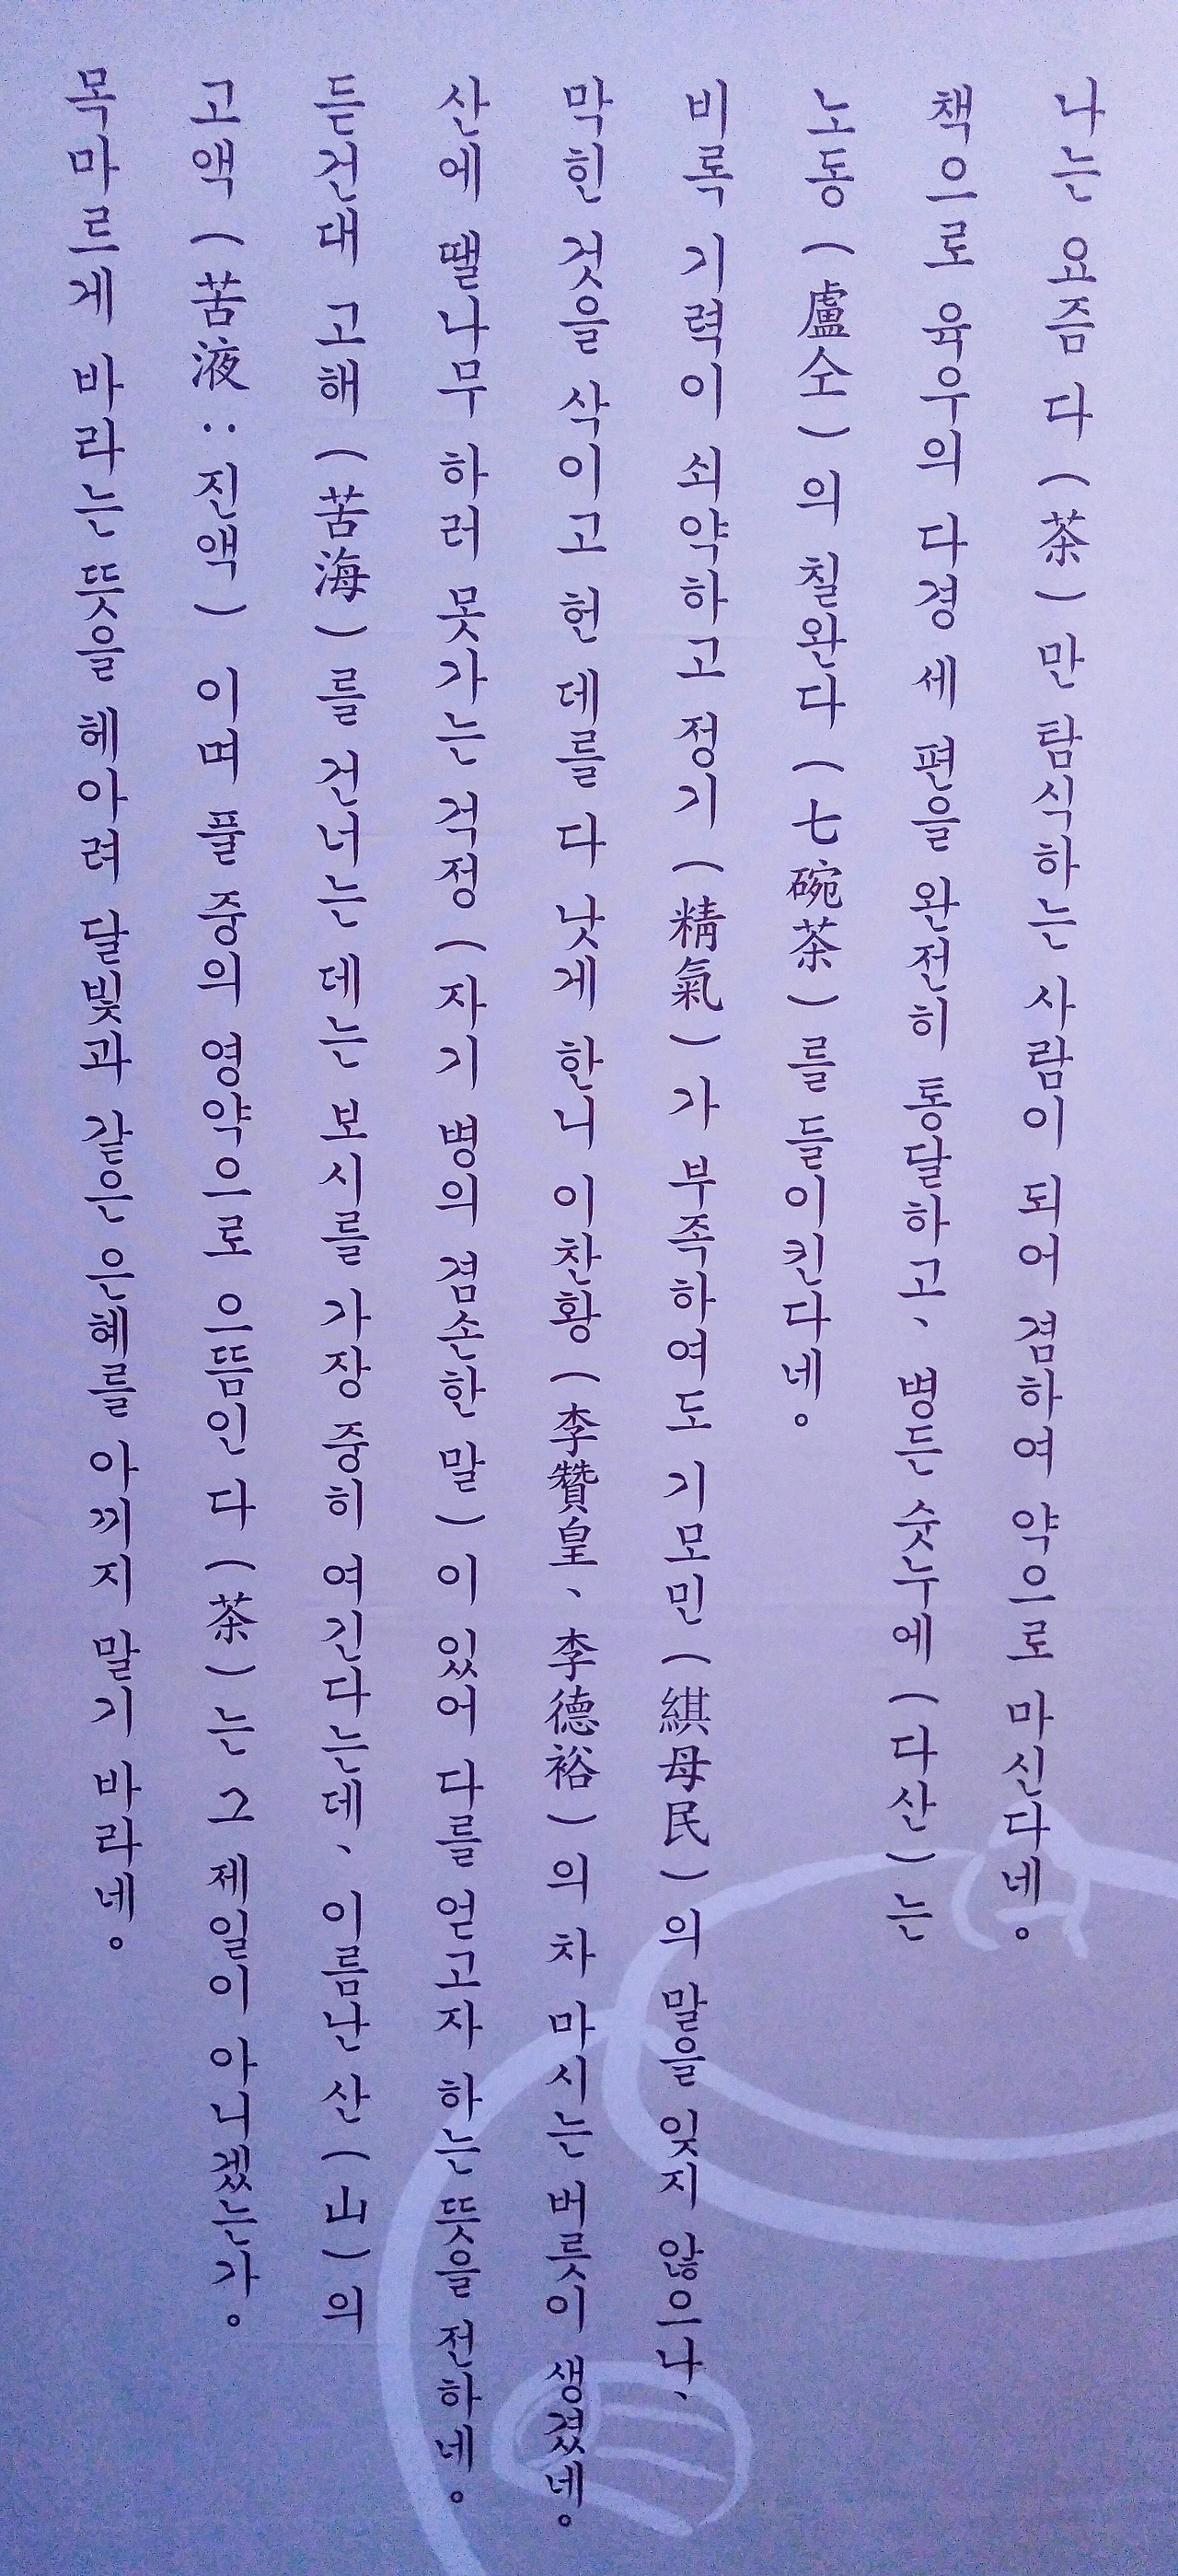 나는 요즘 다(茶)만 탐식하는 사람이 되어 겸하여 약으로 마신다네。
책으로 육우의 다경 세 편을 완전히 통달하고、 병든 숫누에(다산)는
노동(盧仝)의 칠완다(七碗茶)를 들이킨다네。
비록 기력이 쇠약하고 정기(精氣)가 부족하여도 기모민(綨母民)의 말을 잊지 않으나、
막힌 것을 삭이고 헌 데를 다 낫게 한니 이찬황(李贊皇、李德裕)의 차 마시는 버릇이 생겼네。
산에 땔나무 하러 못가는 걱정(자기 병의 겸손한 말)이 있어 다를 얻고자 하는 뜻을 전하네。
듣건대 고해(苦海)를 건너는 데는 보시를 가장 중히 여긴다는데、이름난 산(山)의
고액(苦液:진액) 이며 풀 중의 영약으로 으뜸인 다(茶)는 그 제일이 아니겠는가。
목마르게 바라는 뜻을 헤아려 달빛과 같은 은혜를 아끼지 말기 바라네。